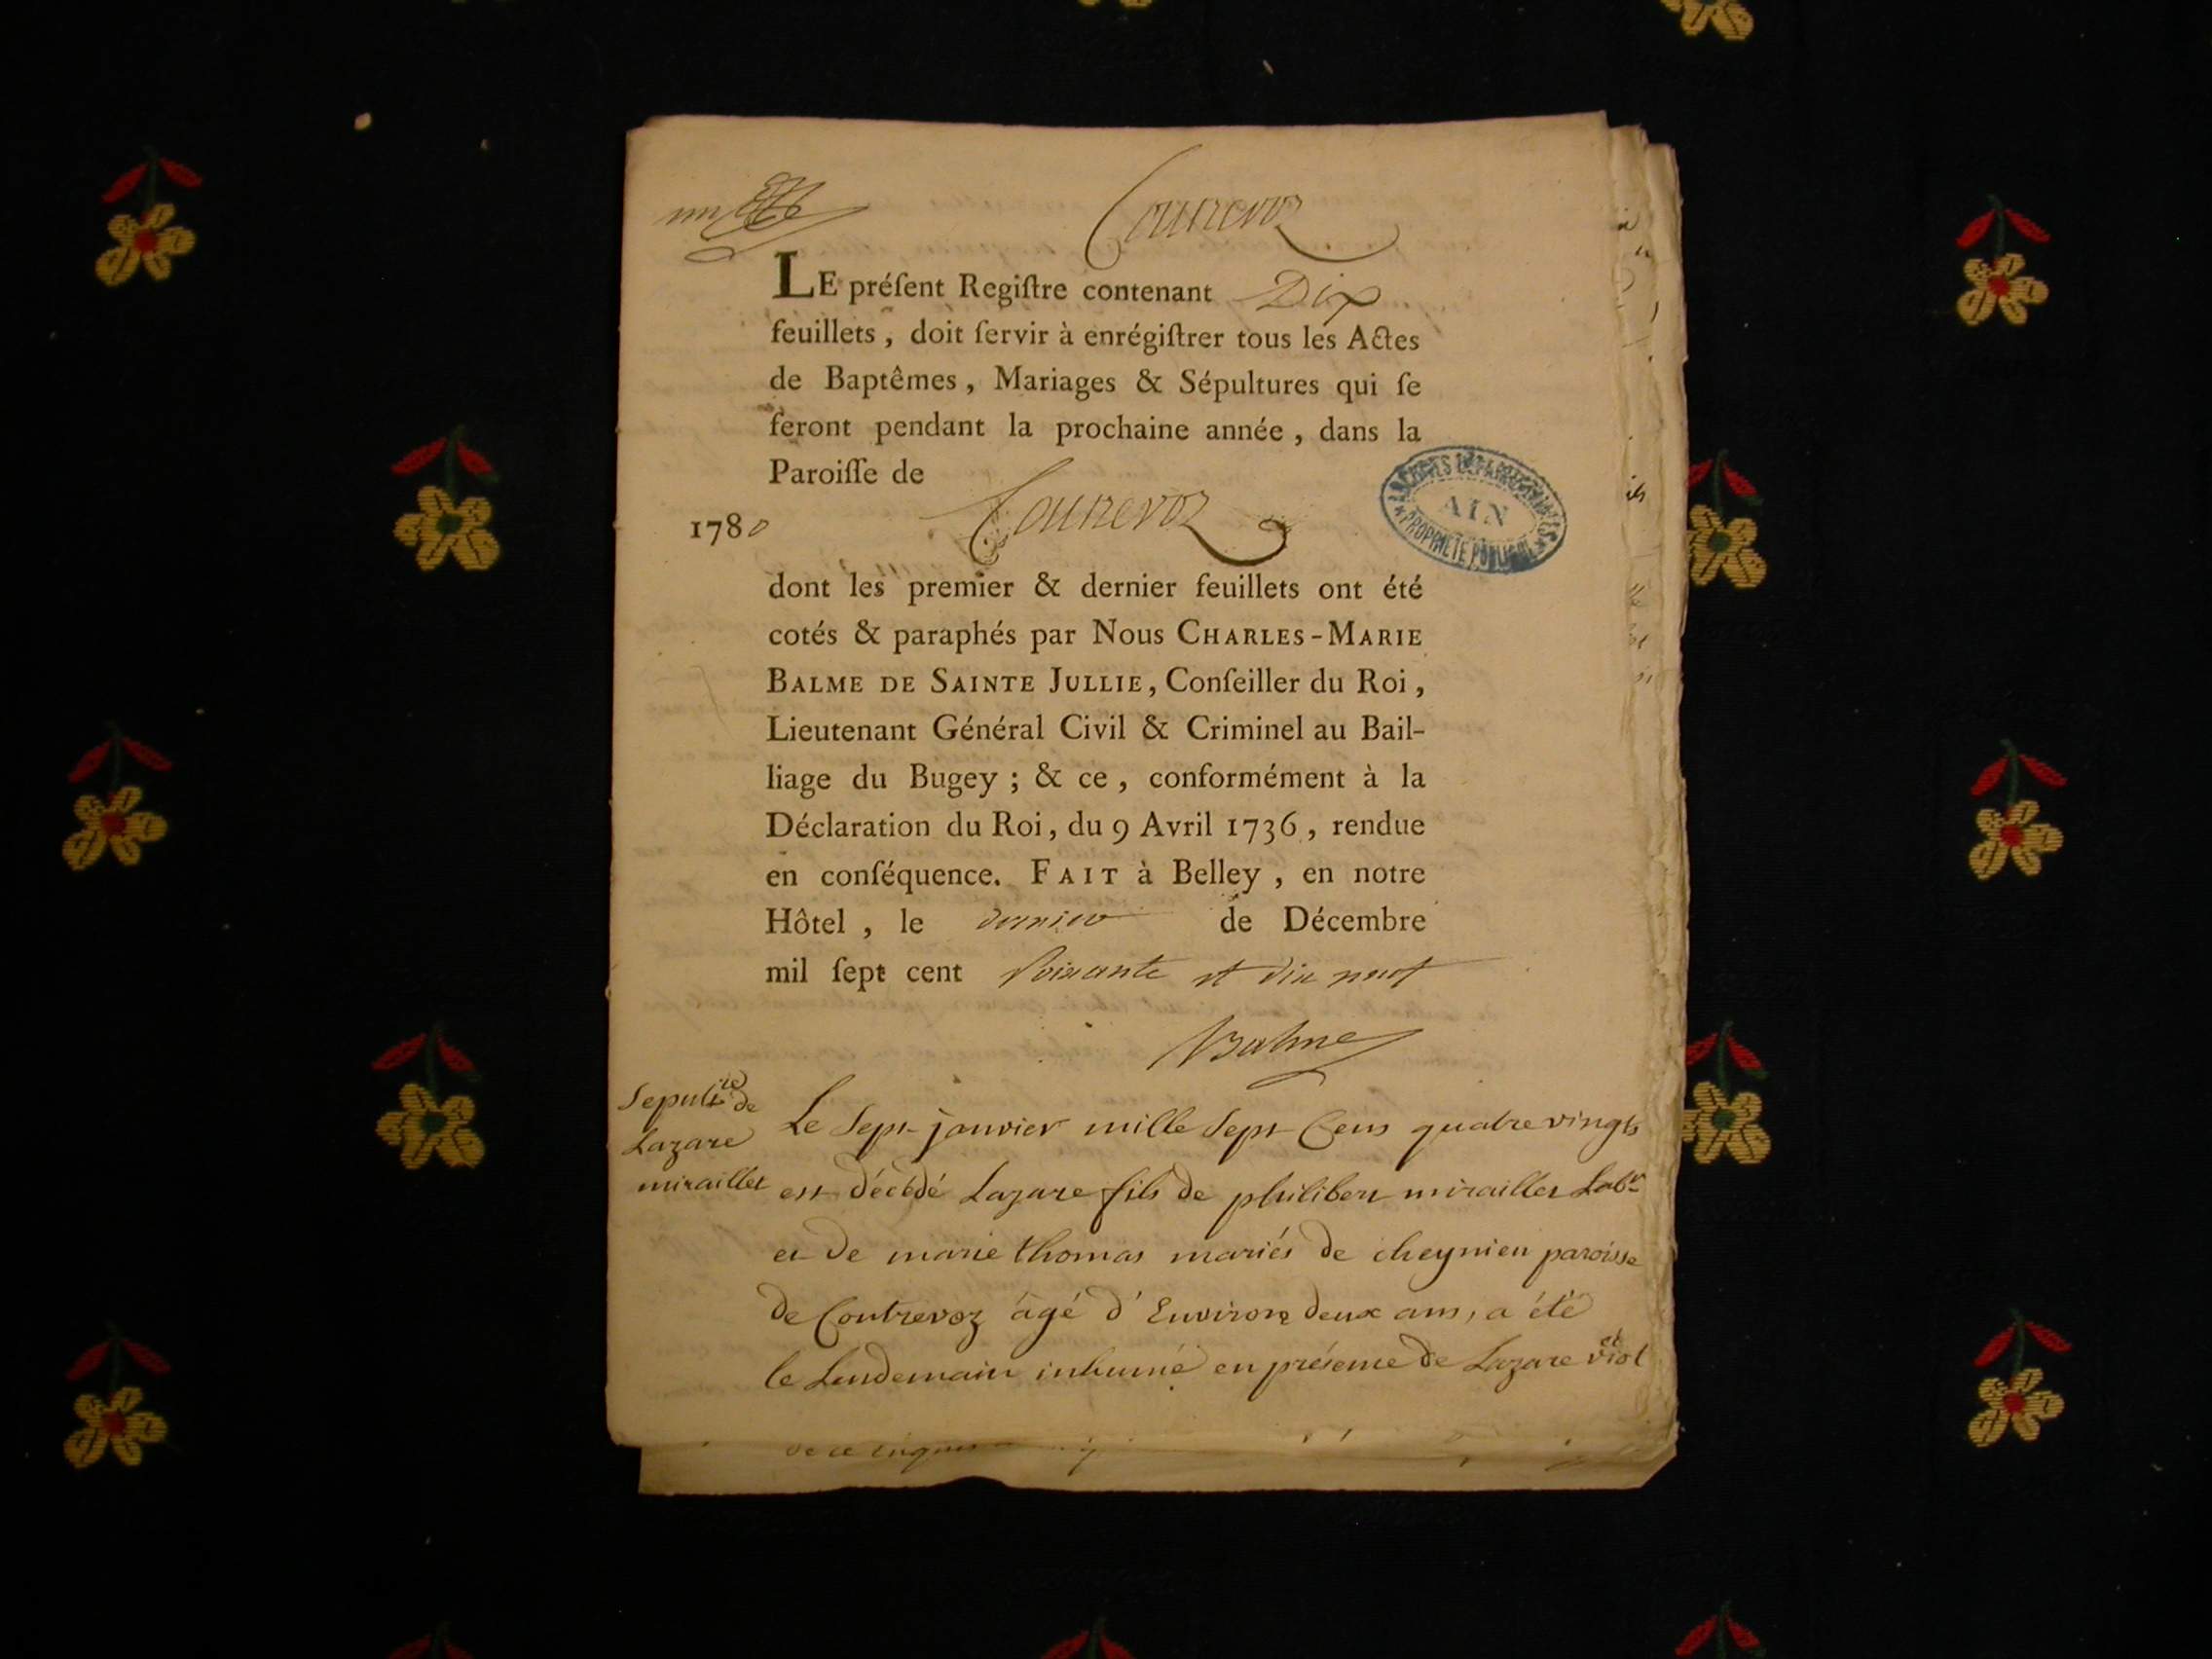 un
Contrevoz
LE préſent Regiſtre contenant Dix
feuillets , doit ſervir à enrégiſtrer tous les Actes
de Baptêmes , Mariages & Sépultures qui ſe
feront pendant la prochaine année , dans la
Paroiſſe de
1780 Contrevoz
ARCHIVES DÉPARTEMENTALES
AIN
PROPRIÉTÉ PUBLIQUE
dont les premier & dernier feuillets ont été
cotés & paraphés par Nous CHARLES-MARIE
BALME DE SAINTE JULLIE, Conſeiller du Roi ,
Lieutenant Général Civil & Criminel au Bail-
liage du Bugey ; & ce , conformément à la
Déclaration du Roi, du 9 Avril 1736 , rendue
en conſéquence. FAIT à Belley , en notre
Hôtel , le dernier de Décembre
mil ſept cent soixante et dix neuf
Balme
Sepult.re de
Lazare
miraillet
Le Sept janvier mille Sept Cens quatre vingts
est décédé Lazare fils de philibert miraillet Labr
et de marie thomas mariés de cheynieu paroisse
de Contrevoz âgé d'Environ deux ans, a été
le Lendemain inhumé en présence de Lazare viol et